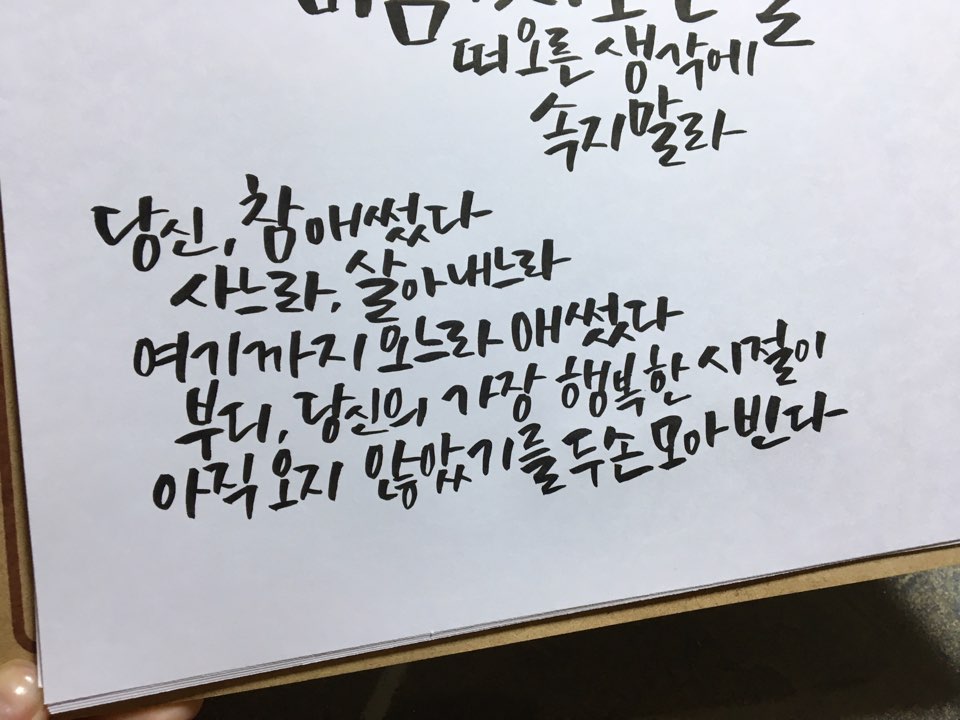 떠오른 생각에
속지말라
당신, 참 애썼다
사느라, 살아내느라
여기까지 오느라 애썼다
부디, 당신의 가장 행복한 시절이
아직 오지 않았기를 두손 모아 빈다